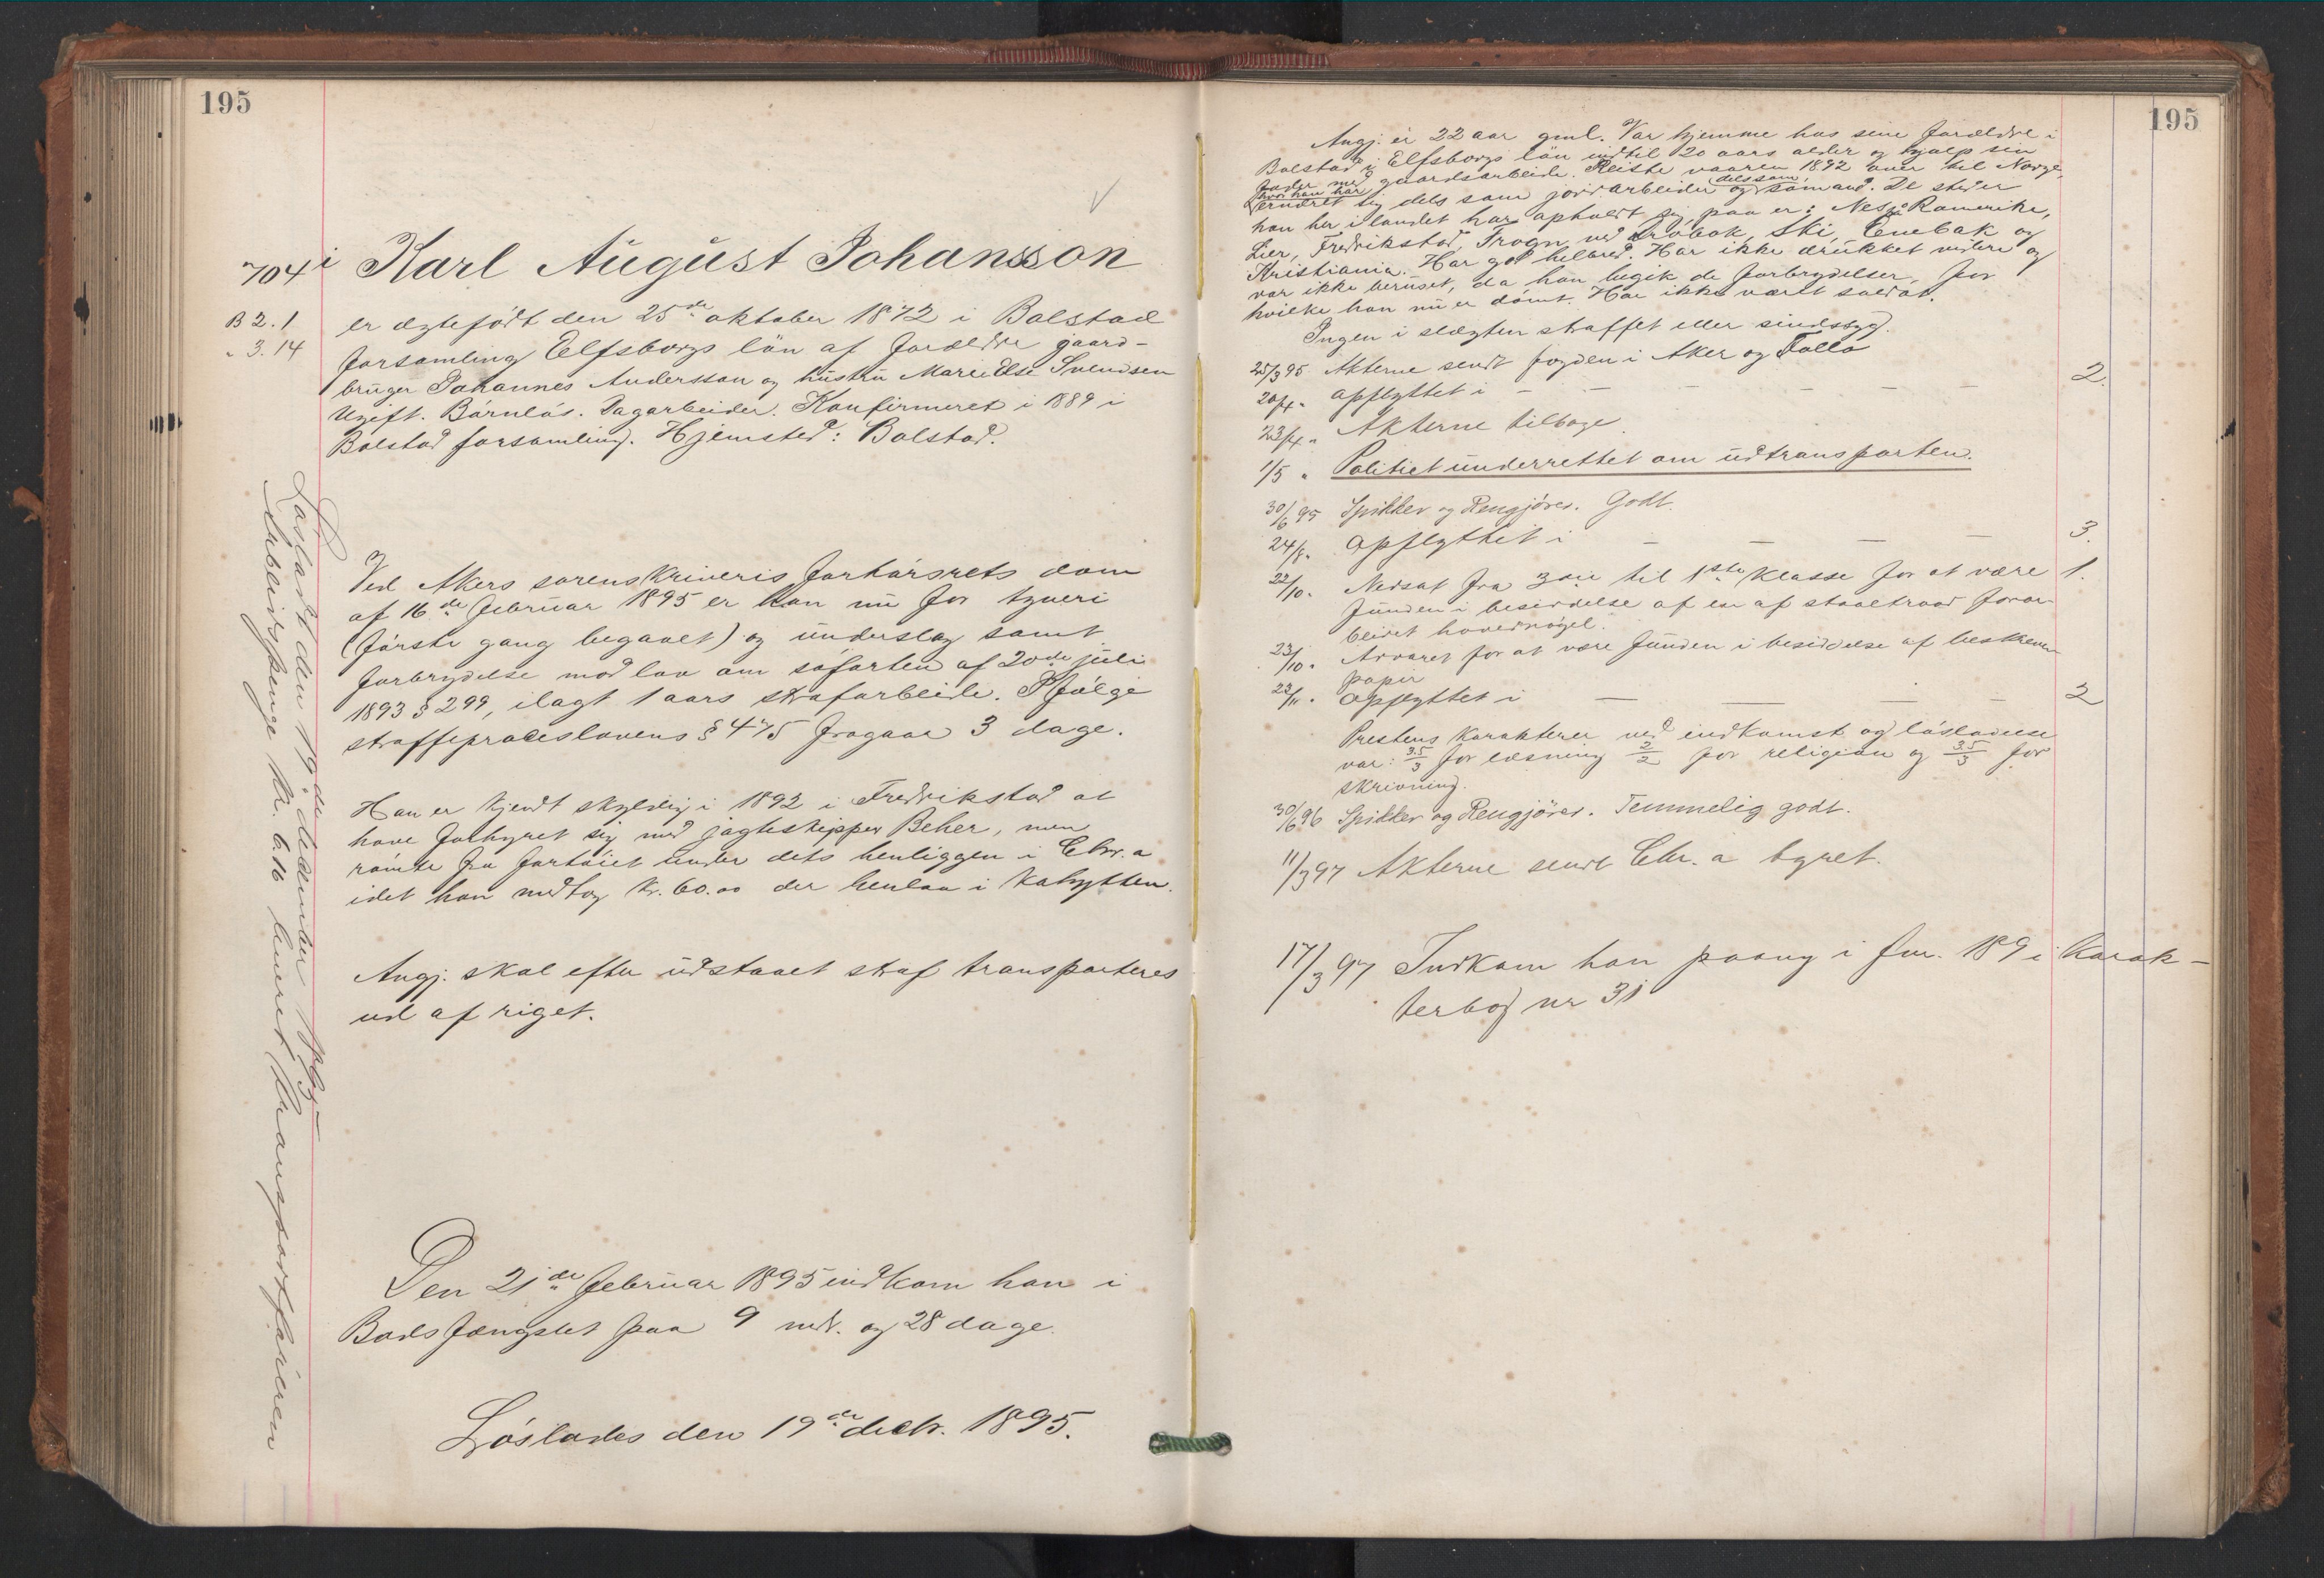 195
704 i Karl August Johansson
B 2.1
" 3.14
er ægtefödt den 25de oktober 1872 i Bolstad
forsamling Elfsborgs län af forældre gaard-
bruger Johannes Andersson og hustru Marie Else Svendsen
Ugift. Börnlös. Dagarbeider. Konfirmeret i 1889 i
Bolstad forsamling. Hjemsted: Bolstad.
Ved Akers sorenskriveris forhörsrets dom
af 16de februar 1895 er han nu for tyveri
(förste gang begaaet) og underslag samt
forbrydelse mod lov om söfarten af 20de juli
1893 § 299, ilagt 1 aars strafarbeide. Ifölge
straffeproceslovens § 475 fragaar 3 dage.
Han er kjendt skyldig i 1892 i Fredrikstad at
have forhyret sig med jagteskipper Beher, men
römte fra fartöiet under dets henliggen i Chr.a
idet han medtog Kr. 60.00 der henlaa i Kahytten.
Angj. skal efter udstaaet straf transporteres
ud af riget.
Den 21de februar 1895 indkom han i
Bodsfængslet paa 9 mdr. og 28 dage.
Löslades den 19de decbr. 1895.
Lösladt den 19de december
Arbeidspenge kr. 6.16 leveret transportföreren
195
Angj. er 22 aar gml. Var hjemme hos sine forældre i
Bolstad i Elfsborgs län indtil 20 aars alder og hjalp sin
fader med gaardsarbeide. Reiste vaaren 1892 over til Norge,
hvor han har delssom
ernæret sig dels som jordarbeider og sömand. De steder
han her i landet har opholdt sig paa er: Nes på Romerike,
Lier, Fredrikstad, Frogn ved Dröbak, Ski, Enebak og
Kristiania. Har god helbred. Har ikke drukket videre og
var ikke beruset, da han begik de forbrydelser, for
hvilke han nu er dömt. Har ikke været soldat.
Ingen i slægten straffet eller sindssyg.
25/3 95 Akterne sendt fogden i Aker og Follo
20/4 " opflyttet i — — — — — — 2.
23/4 " Akterne tilbage.
1/5 " Politiet underrettet om udtransporten.
30/6 95 Spikker og Rengjörer. Godt.
24/8 " Opflyttet i — — — — 3.
22/10 " Nedsat fra 3die til 1ste Klasse for at være 1.
funden i besiddelse af en af staaltraad forar-
beidet hovednögel.
23/10 " Advaret for at være funden i besiddelse af beskreven
papir
22/11 " Opflyttet i — — — — 2
Prestens Karakterer ved indkomst og lösladelse
var: 3.5/3 for læsning 2/2 for religion og 3.5/3 for
skrivning.
30/6 96 Spikker og Rengjörer. Temmelig godt.
11/3 97 Akterne sendt Chr.a byret.
17/3 97 Indkom han paany i fnr. 189 i Karak-
terbog nr 31